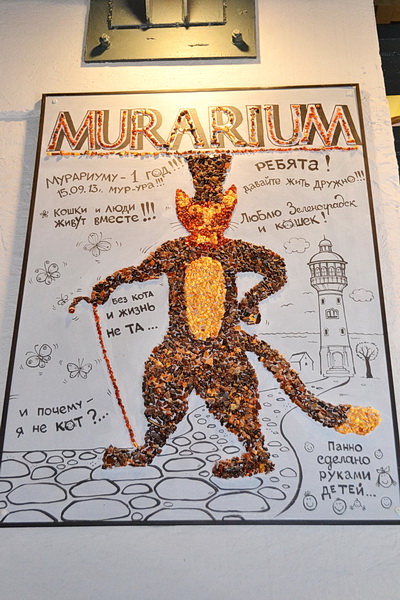 MURARIUM
МУРАРИУМУ - 1 ГОД!!!
15.09.13. МУР-УРА!!!
* КОШКИ И ЛЮДИ
ЖИВУТ ВМЕСТЕ!!!
РЕБЯТА!
ДАВАЙТЕ ЖИТЬ ДРУЖНО!!!
Люблю Зеленоградск
и кошек!
БЕЗ КОТА
И ЖИЗНЬ
НЕ ТА...
И ПОЧЕМУ -
Я НЕ КОТ?...
Панно
сделано
руками
детей...